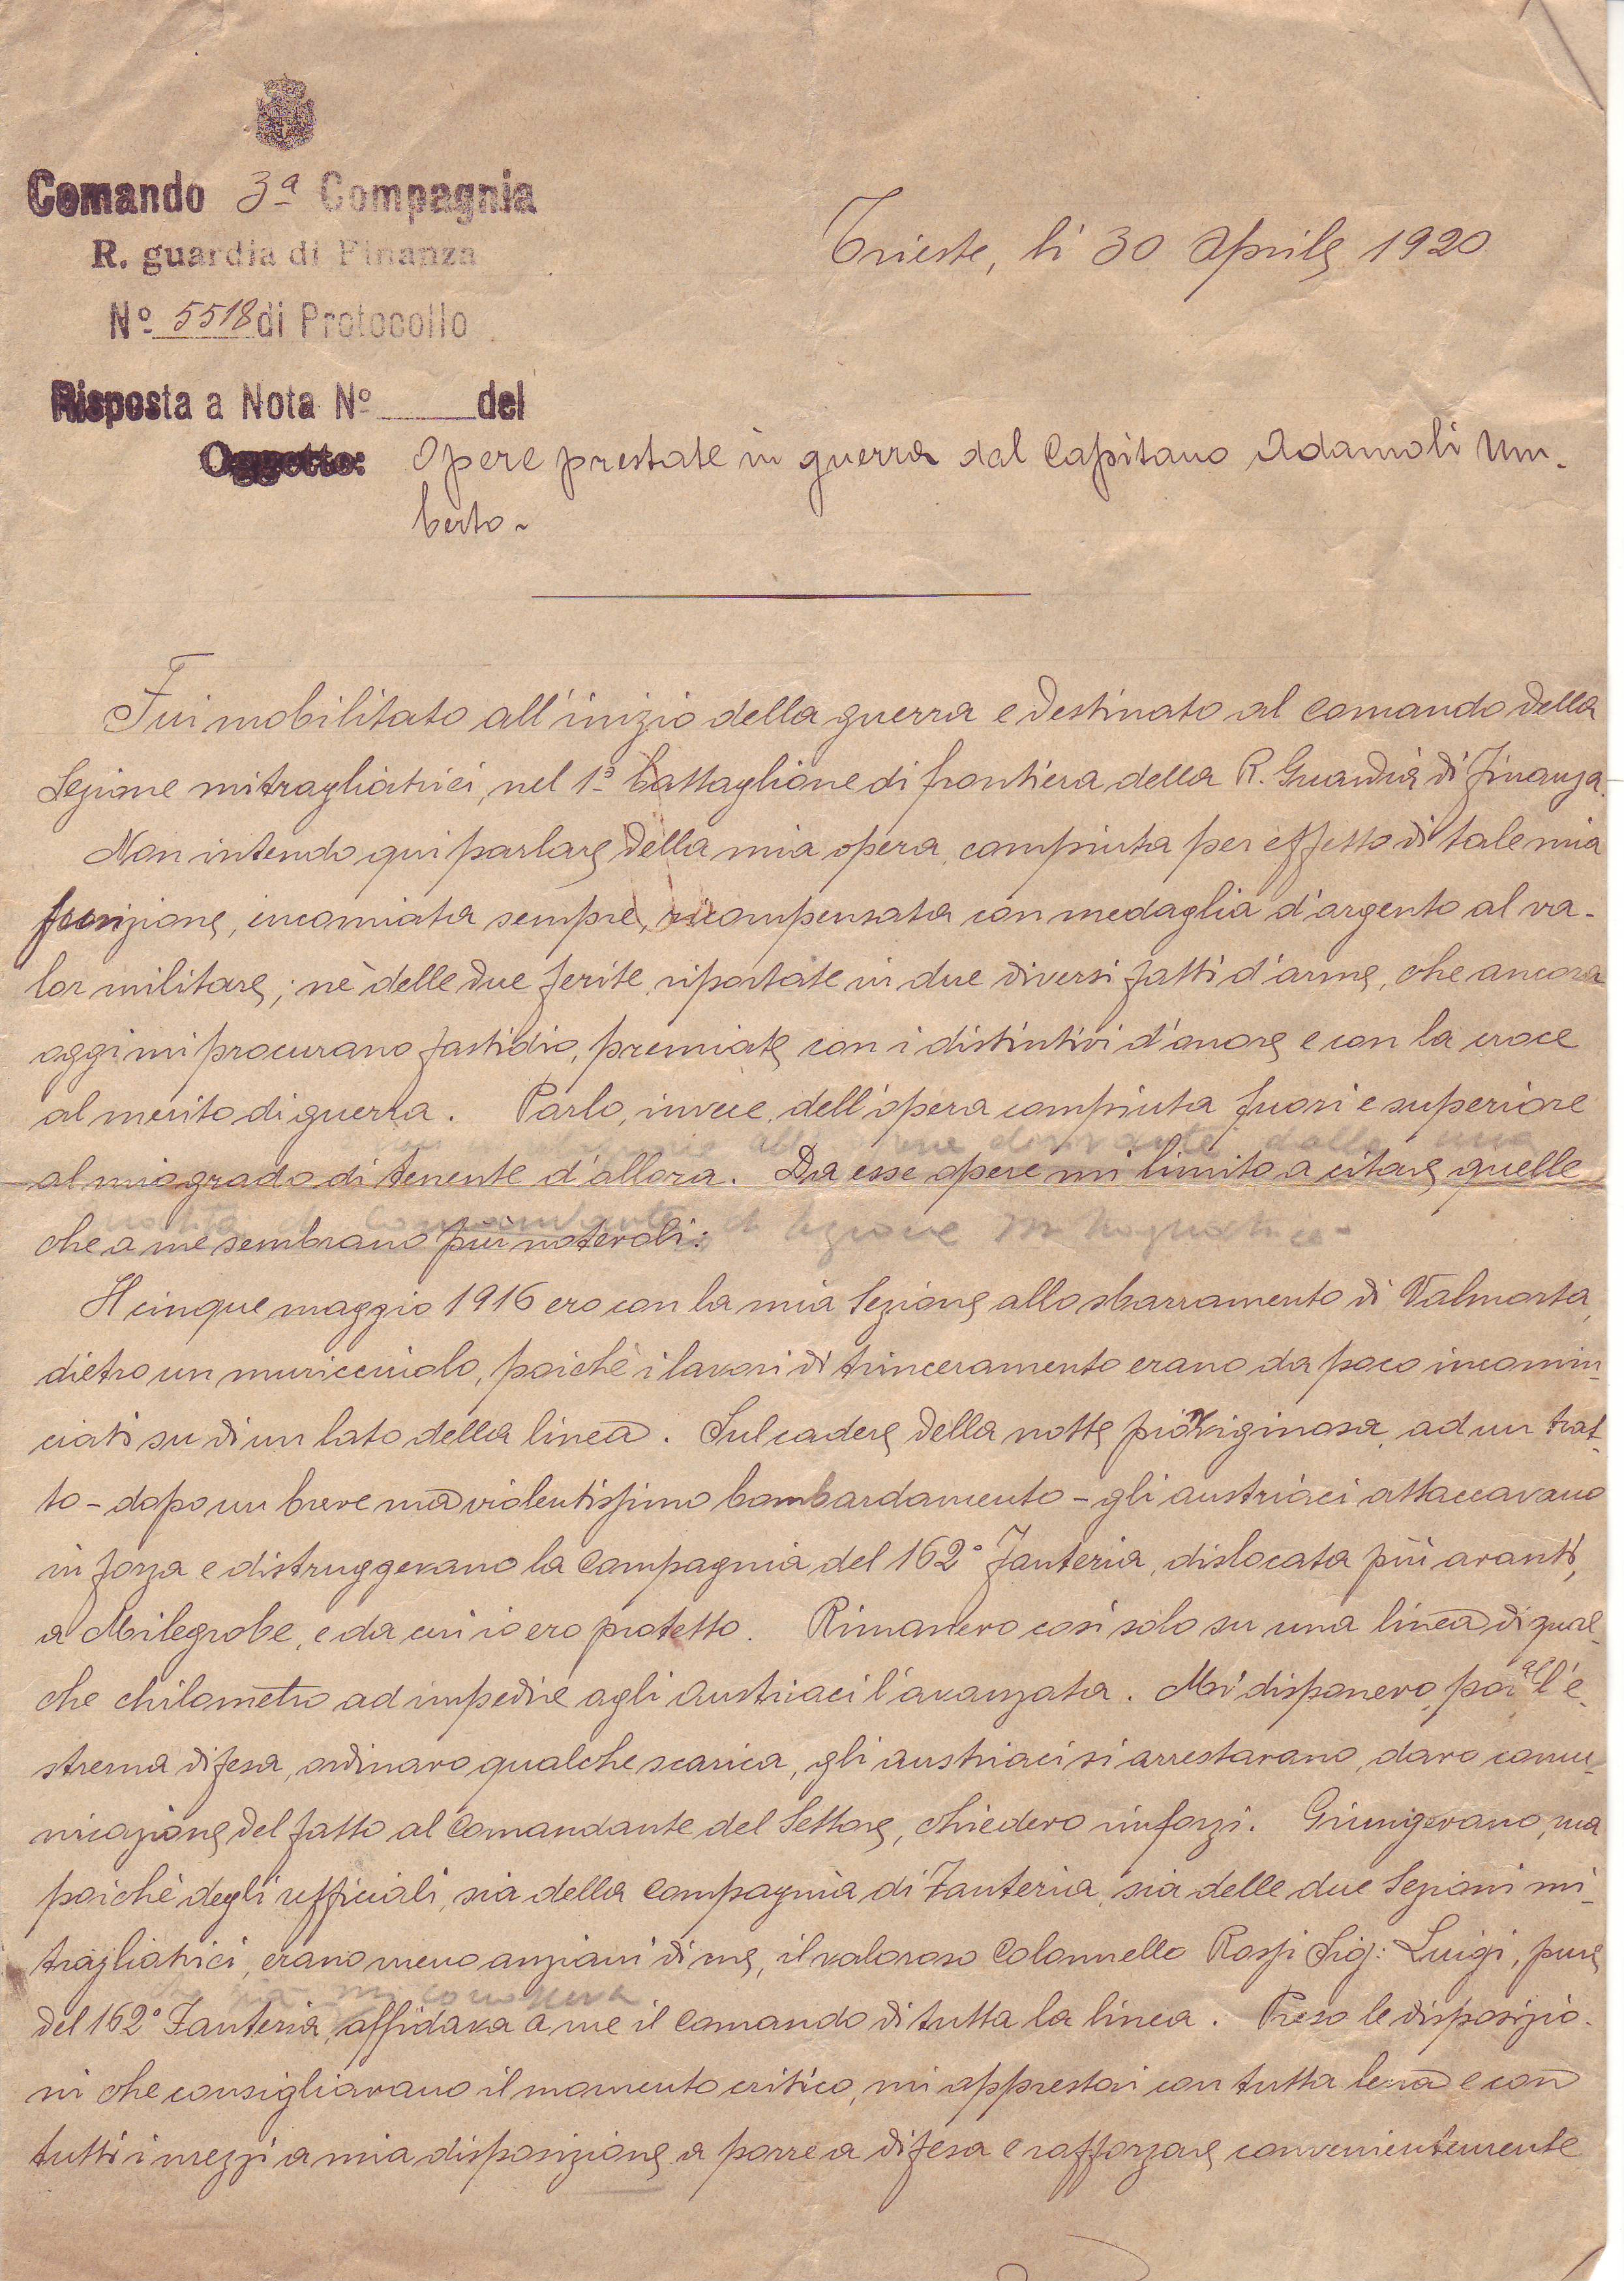 Comando 3ª Compagnia
R. guardia di Finanza
Nº 5518 di Protocollo
Trieste, lì 30 Aprile 1920
Risposta a Nota Nº ____ del
Oggetto: Opere prestate in guerra dal Capitano Adamoli Um-
berto.
Fui mobilitato all'inizio della guerra e destinato al comando della
Sezione mitragliatrici, nel 1º battaglione di frontiera della R. Guardia di Finanza.
Non intendo qui parlare della mia opera, compiuta per effetto di tale mia
funzione, encomiata sempre, ricompensata con medaglia d'argento al va-
lor militare; nè delle due ferite, riportate in due diversi fatti d'arme, che ancora
oggi mi procurano fastidio, premiate con i distintivi d'onore e con la croce
al merito di guerra. Parlo, invece, dell'opera compiuta fuori e superiore
dalla mia
al mio grado di tenente d'allora. Da esse opere mi limito a citare quelle
Comandante di sezione mitragliatrice
che a me sembrano più notevoli:
Il cinque maggio 1916 ero con la mia Sezione allo sbarramento di Valmorta,
dietro un muricciuolo, poichè i lavori di trinceramento erano da poco incomin-
ciati su di un lato della linea. Sul cadere della notte piovigginosa, ad un trat-
to - dopo un breve ma violentissimo bombardamento - gli austriaci attaccavano
in forza e distruggevano la Compagnia del 162º Fanteria, dislocata più avanti,
a Milegrobe, e da cui io ero protetto. Rimanevo così solo su una linea di qual-
che chilometro ad impedire agli Austriaci l'avanzata. Mi disponevo, poi al l'e-
strema difesa, ordinavo qualche scarica, gli austriaci si arrestavano, davo comu-
nicazione del fatto al Comandante del Settore, chiedevo rinforzi. Giungevano, ma
poichè degli ufficiali, sia della Compagnia di Fanteria, sia delle due Sezioni mi-
tragliatrici, erano meno anziani di me, il valoroso Colonnello Rossi Sig: Luigi, pure
che già mi conosceva
del 162º Fanteria, affidava a me il comando di tutta la linea. Preso le disposizio-
ni che consigliavano il momento critico, mi apprestai con tutta lena e con
tutti i mezzi a mia disposizione a porre a difesa e rafforzare convenientemente